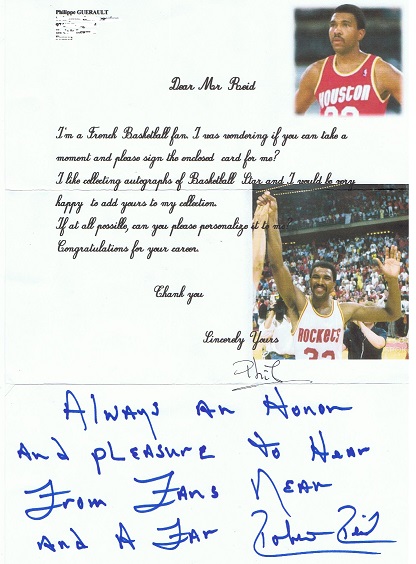 Philippe GUERAULT
Dear Mr Reid
HOUSTON
I'm a French Basketball fan. I was wondering if you can take a
moment and please sign the enclosed card for me?
I like collecting autographs of Basketball Star and I would be very
happy to add yours to my collection.
If at all possible, can you please personalize it to me?
Congratulations for your career.
Thank you
Sincerely Yours
ROCKETS
Phil
Always an Honor
And pleasure to Hear
From Fans Near
and A Far Robert Reid